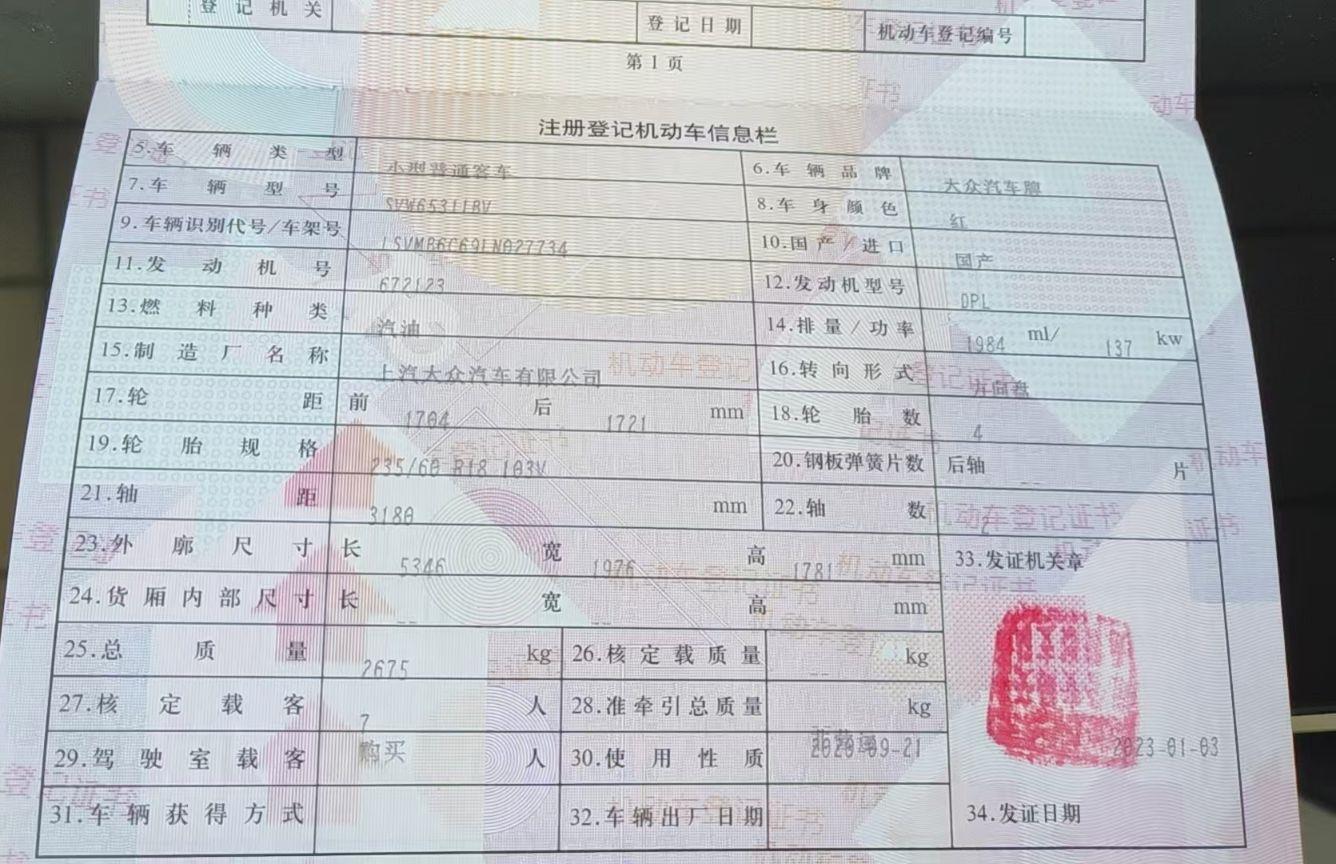 登记机关 登记日期 机动车登记编号
第1页
注册登记机动车信息栏
5.车辆类型 小型普通客车 6.车辆品牌 大众汽车牌
7.车辆型号 SVW65311BV 8.车身颜色 红
9.车辆识别代号/车架号 LSVMB6C69LN027734 10.国产/进口 国产
11.发动机号 672123 12.发动机型号 DPL
13.燃料种类 汽油 14.排量/功率 1984 ml/ 137 kw
15.制造厂名称 上汽大众汽车有限公司 16.转向形式 方向盘
17.轮距 前 1704 后 1721 mm 18.轮胎数 4
19.轮胎规格 235/60 R18 103V 20.钢板弹簧片数 后轴 -- 片
21.轴距 3180 mm 22.轴数 2
23.外廓尺寸 长 5346 宽 1976 高 1781 mm 33.发证机关章
24.货厢内部尺寸 长 -- 宽 -- 高 -- mm
25.总质量 2675 kg 26.核定载质量 -- kg
27.核定载客 7 人 28.准牵引总质量 kg
29.驾驶室载客 购买 人 30.使用性质 2020-09-21 2023-01-03
31.车辆获得方式 32.车辆出厂日期 34.发证日期